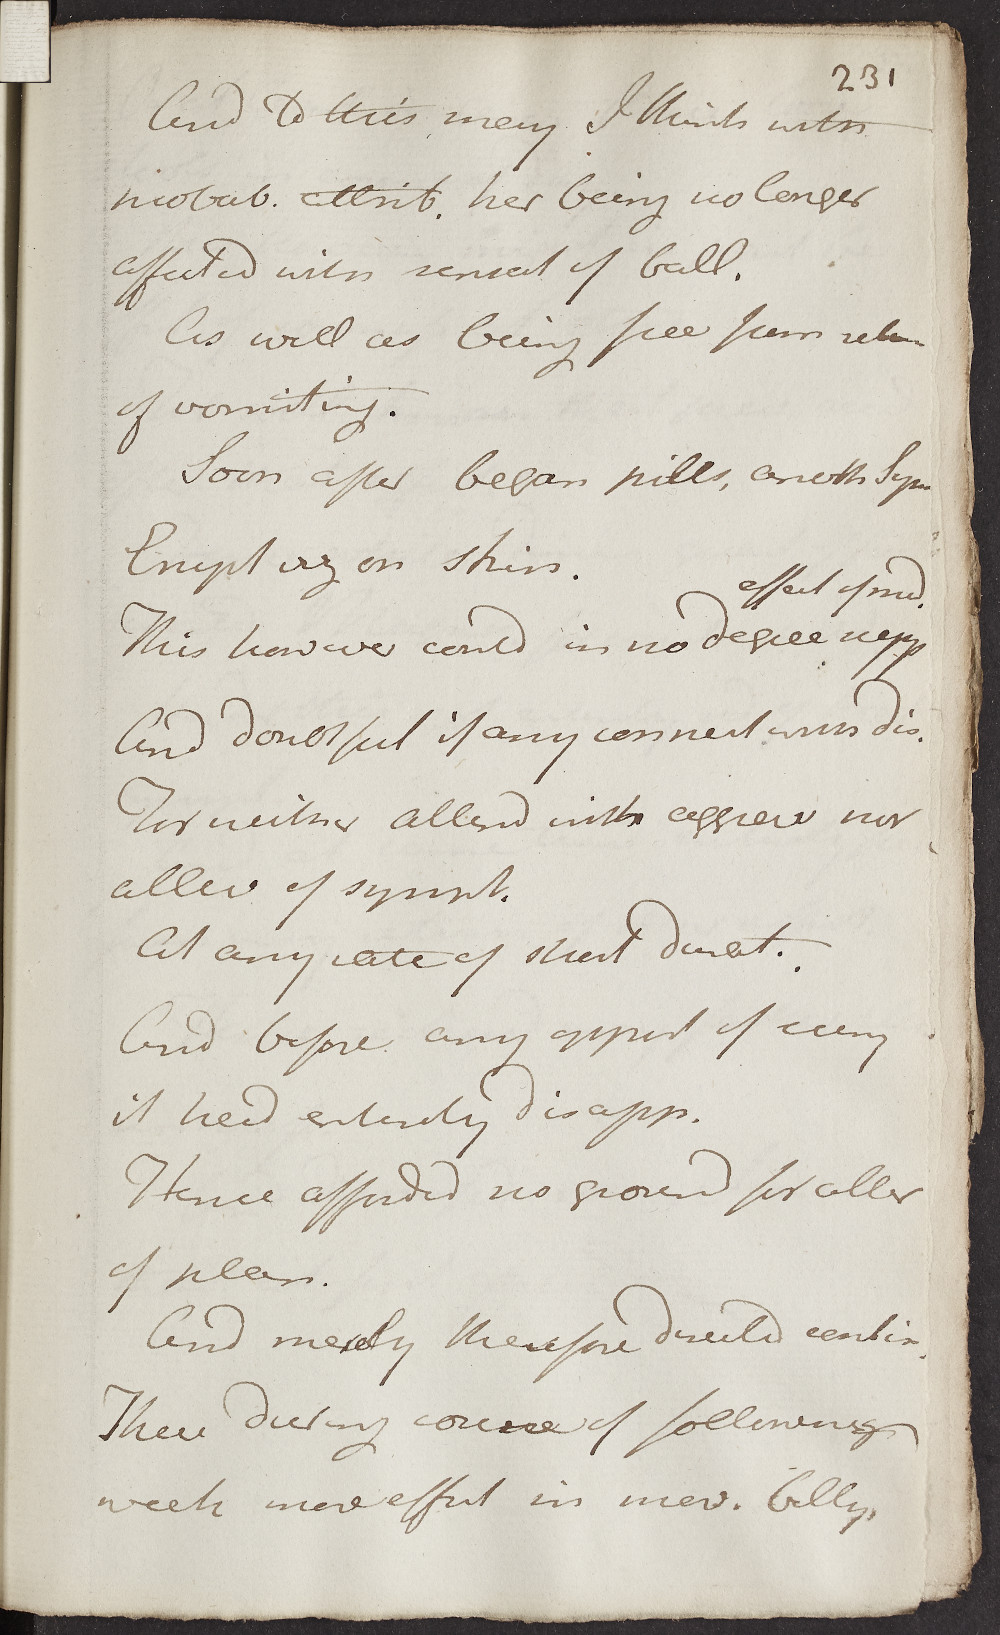 231
And to this, may I think with
probab. attrib. her being no longer
affected with sensat of ball.
As well as being free from return
of vomiting.
Soon after began pills, anoth Sym
Erupt on skin.
effect of med.
This however could in no degree supp
And doubtful if any connect with dis.
For neither attend with aggrav nor
allev of sympt.
At any rate of short durat.
And before any opport of seeing
it had entirely disapp.
Hence afforded no ground for alter
of plan.
And merely therefore directed contin.
These during course of following
week more effect in mov. belly,